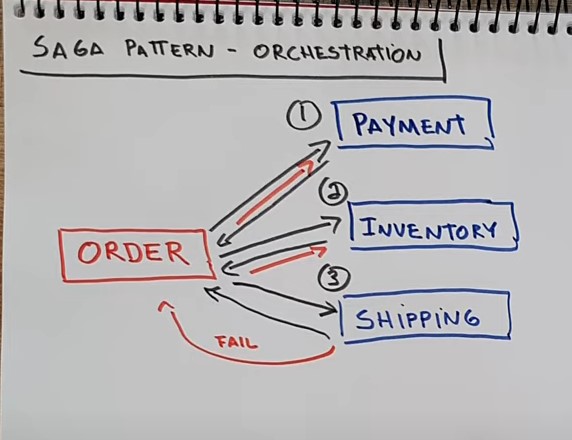 SAGA PATTERN - ORCHESTRATION
1
PAYMENT
2
INVENTORY
ORDER
3
SHIPPING
FAIL